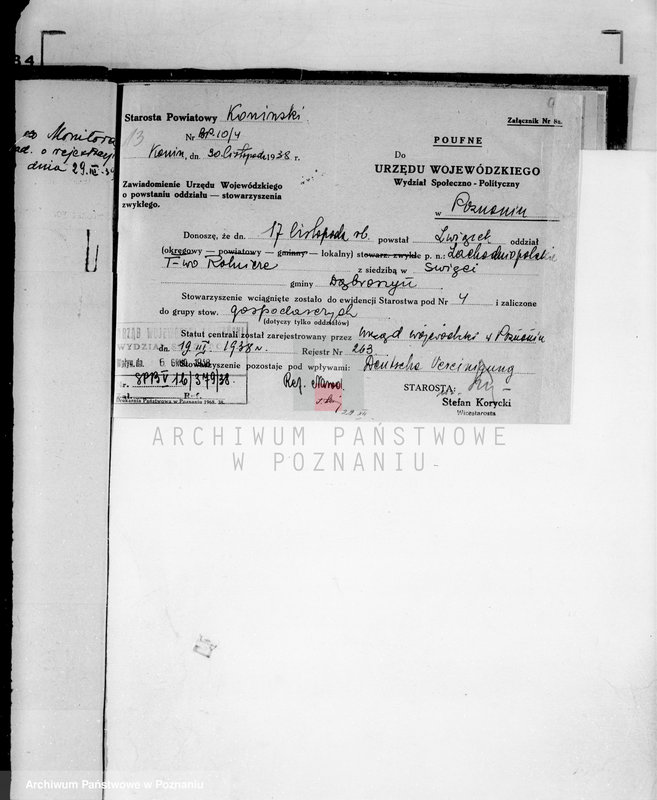 34
Monitora
o rejestracji
dnia 29.
Starosta Powiatowy Koninski
Załącznik Nr 8a.
13
Nr BP.10/4
POUFNE
Konin, dn. 30 listopada 1938 r.
Do
URZĘDU WOJEWÓDZKIEGO
Wydział Społeczno - Polityczny
w Poznaniu
Zawiadomienie Urzędu Wojewódzkiego
o powstaniu oddziału — stowarzyszenia
zwykłego.
Donoszę, że dn. 17 listopada rb. powstał Związek oddział
(okręgowy — powiatowy — gminny — lokalny) stowarz. zwykłe p. n.: Zachodniopolskie
T-wo Rolnicze z siedzibą w Święci
gminy Dąbroszyn
Stowarzyszenie wciągnięte zostało do ewidencji Starostwa pod Nr 4 i zaliczone
do grupy stow. gospodarczych
(dotyczy tylko oddziałów)
Statut centrali został zarejestrowany przez Urząd Wojewódzki w Poznaniu
dn. 19 VII 1938 r. Rejestr Nr 263
Stowarzyszenie pozostaje pod wpływami: Deutsche Vereinigung
URZĄD WOJEWÓDZKI
WYDZIAŁ
Wpływ. dn. 6
Nr. SPB V 12/379/38.
Zał. Ref.
Ref. Narod.
STAROSTA:
Stefan Korycki
Wicestarosta
Drukarnia Państwowa w Poznaniu 1968. 38.
29 XII
ARCHIWUM PAŃSTWOWE
W POZNANIU
Archiwum Państwowe w Poznaniu